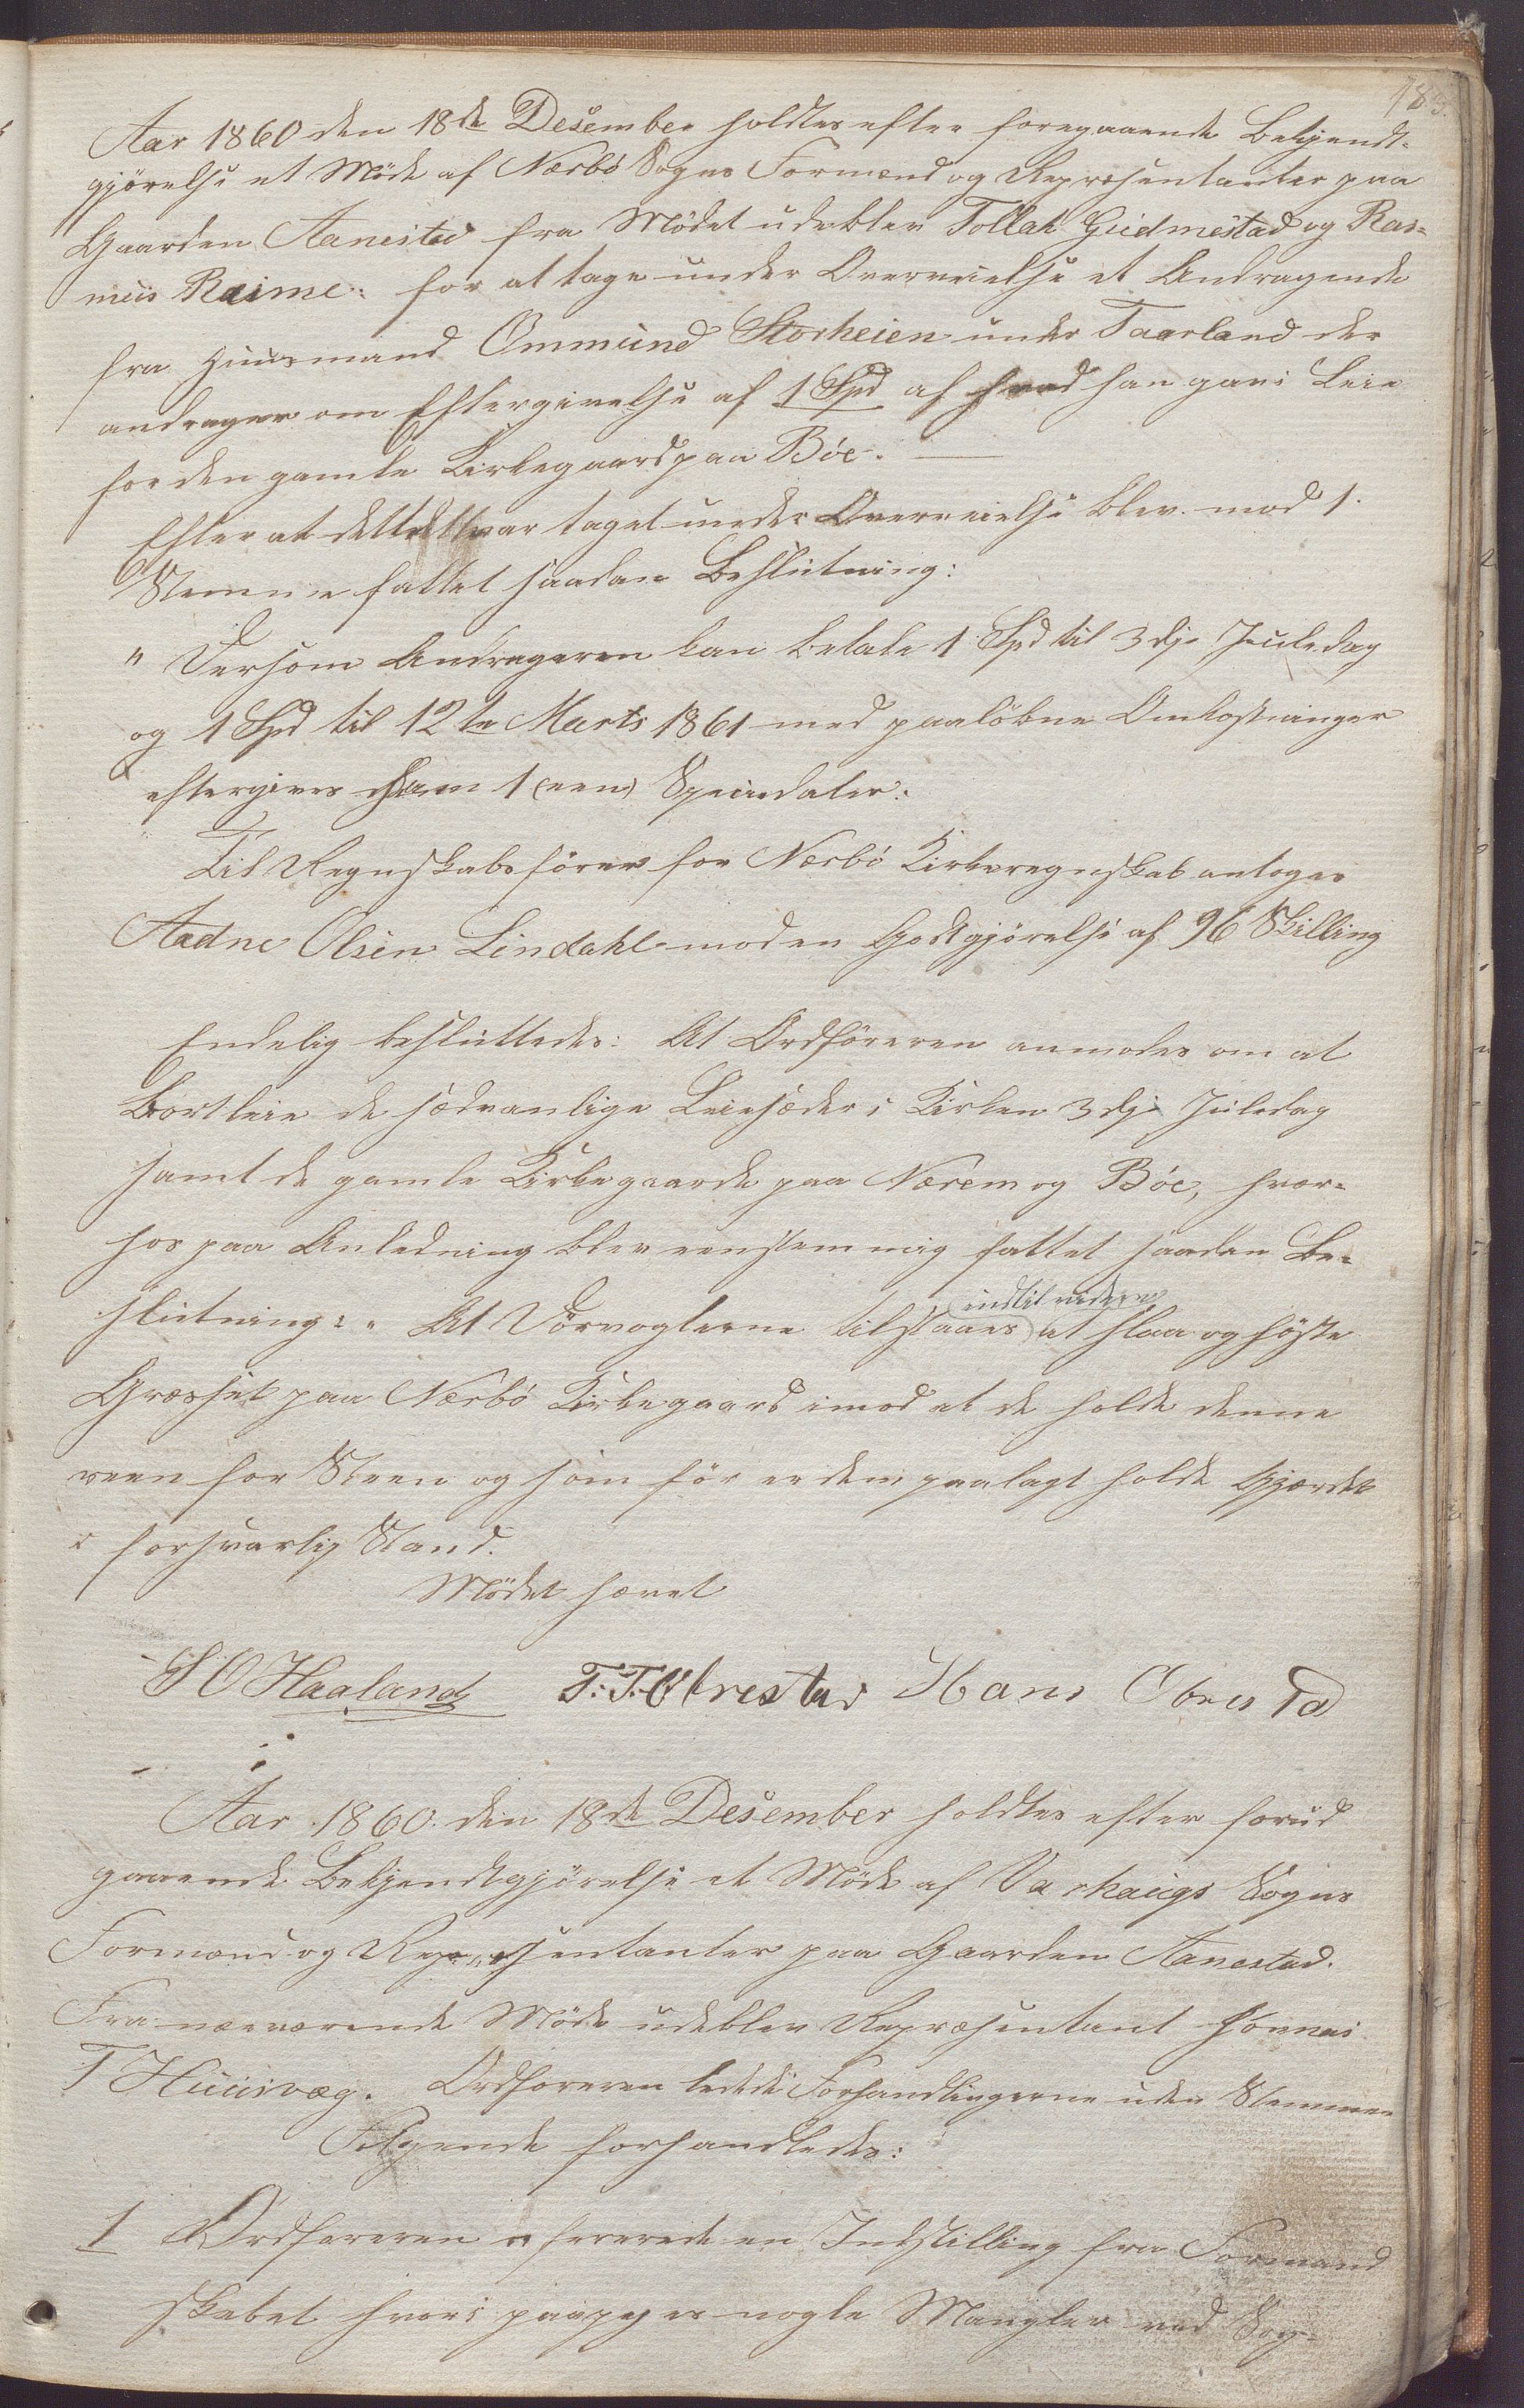 183.
Aar 1860 den 18de Desember holdtes efter foregaaende Bekjendt-
gjørelse et Møde af Nærbø Sogns Formænd og Repræsentanter paa
Gaarden Aanestad fra Mødet udeblev Tollak Gudmestad og Ras-
mus Raime: for at tage under Overveielse et Andragende
fra Huusmand Ommund Storheien under Taarland der
andrager om Eftergivelse af 1 Spd af hvad han gav i Leie
for den gamle Kirkegaard paa Bøe.
Efter at dette var taget under Overveielse blev mod 1
Stemme fattet saadan Beslutning:
" Dersom Andrageren kan betale 1 Spd til 3dje Juledag
og 1 Spd til 12te Marts 1861 med paaløbne Omkostninger
eftergives ham 1 (een) Speciedaler.
Til Regnskabsfører for Nærbø Kirkeregnskab antoges
Aadne Olsen Lindahl mod en Godtgjørelse af 96 Skilling
Endelig besluttedes: At Ordføreren anmodes om at
Bortleie de sædvanlige Leiesæder i Kirken 3dje Juledag
samt de gamle Kirkegaarde paa Nærem og Bøe, hvor-
hos paa Anledning blev eenstemmig fattet saadan Be-
slutning: " At Vörvogterne tilstaaes indtil videre at slaa og høste
Græsset paa Nærbø Kirkegaard imod at de holde denne
reen for Steen og som før er dem paalagt holde Gjærdet
i forsvarlig Stand.
Mødet hævet
S O Haaland T. T. Obrestad Hans Obrestad
Aar 1860 den 18de Desember holdtes efter forud
gaaende Bekjendtgjørelse et Møde af Varhaugs Sogns
Formænd og Repræsentanter paa Gaarden Aanestad.
Fra nærværende Møde udeblev Repræsentant
T Huusvæg. Ordføreren ledede Forhandlingerne uden Stemme
Følgende forhandledes:
1 Ordføreren refererede en Indstilling fra Formand
skabet hvori paapeges nogle Mangler ved Sog-